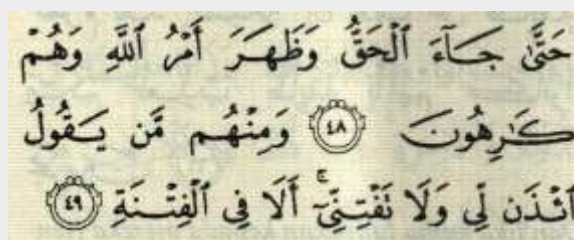 حَتَّىٰ جَآءَ ٱلْحَقُّ وَظَهَرَ أَمْرُ ٱللَّهِ وَهُمْ
كَٰرِهُونَ ٤٨ وَمِنْهُم مَّن يَقُولُ
ٱئْذَن لِّي وَلَا تَفْتِنِّيٓ ۚ أَلَا فِي ٱلْفِتْنَةِ ٤٩